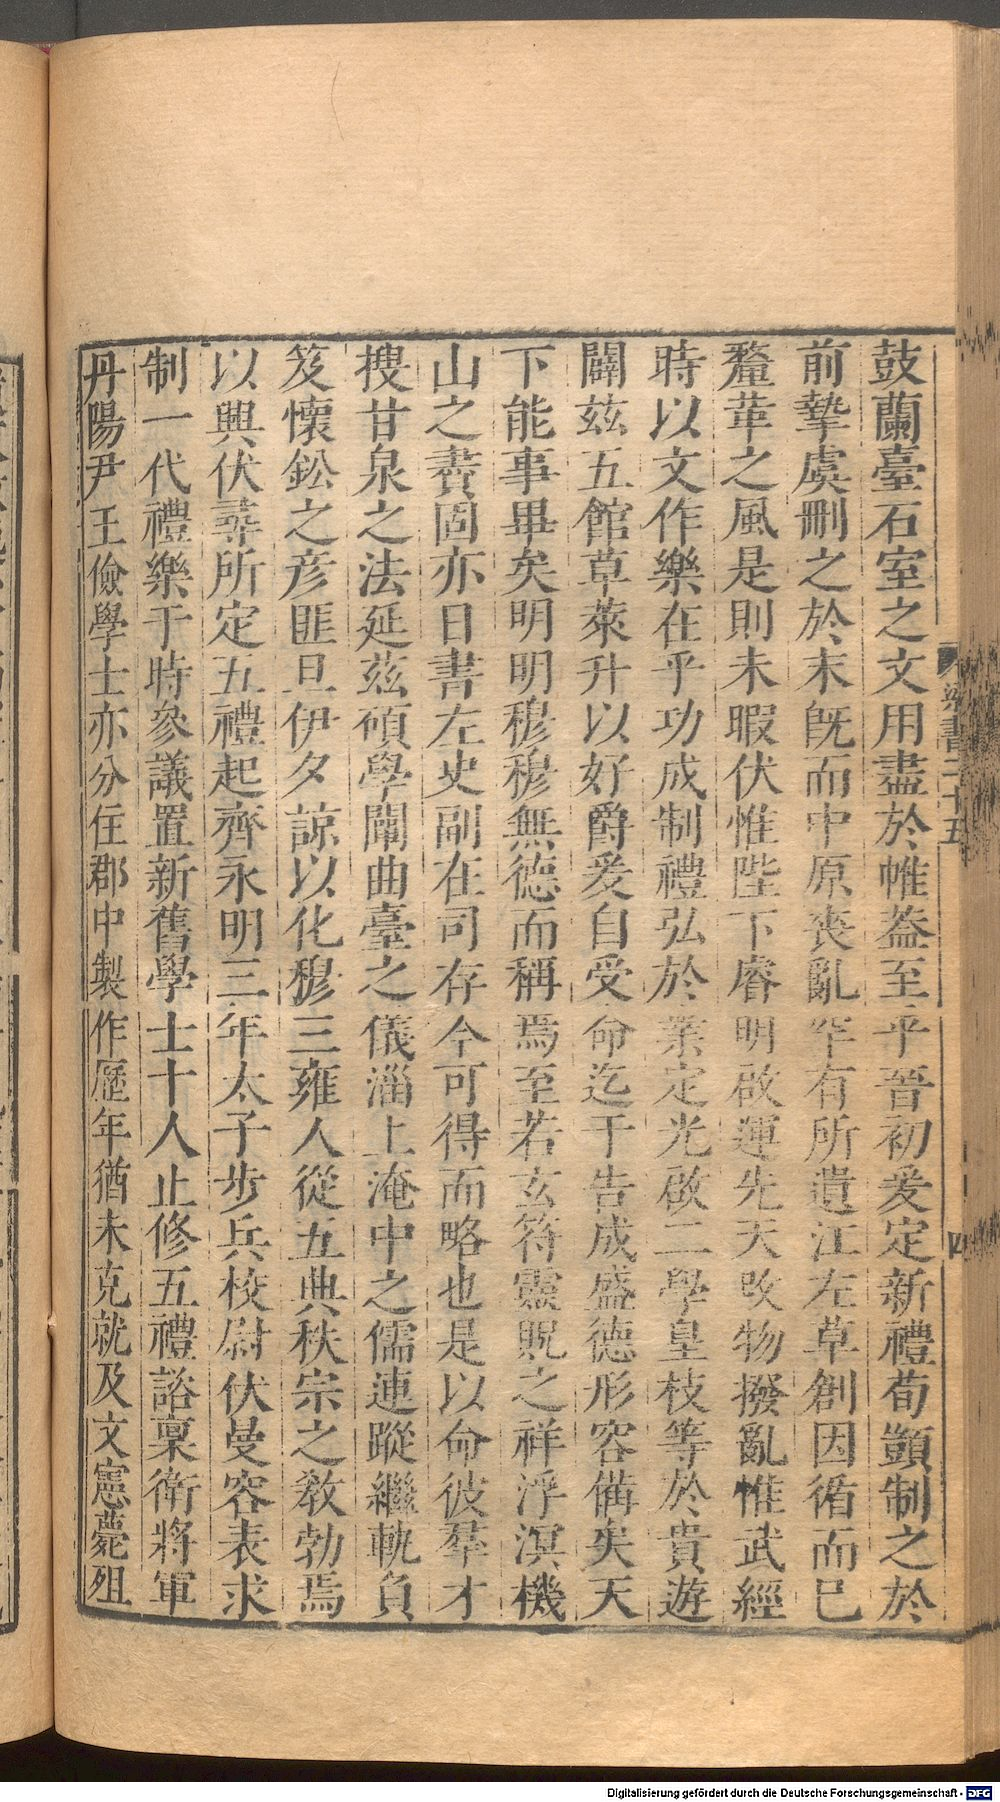 鼓蘭臺石室之文用盡於帷葢至乎晉初爰定新禮荀顗制之於
前摯虞刪之於末旣而中原喪亂罕有所遺江左草創因循而已
釐革之風是則未暇伏惟陛下睿明啟運先天攺物撥亂惟武經
時以文作樂在乎功成制禮弘於業定光啟二學皇枝等於貴遊
闢茲五館草萊升以好爵爰自受命迄于告成盛德形容備矣天
下能事畢矣明明穆穆無德而稱焉至若玄符靈貺之祥浮溟機
山之賮固亦日書左史副在司存今可得而略也是以命彼羣才
搜甘泉之法延茲碩學闡曲臺之儀淄上淹中之儒連蹤繼軌負
笈懷鈆之彥匪旦伊夕諒以化穆三雍人從五典秩宗之敎勃焉
以興伏尋所定五禮起齊永明三年太子步兵校尉伏曼容表求
制一代禮樂于時參議置新舊學士十人止修五禮諮稟衛將軍
丹陽尹王儉學士亦分住郡中製作歷年猶未克就及文憲薨殂
梁書二十五
四
Digitalisierung gefördert durch die Deutsche Forschungsgemeinschaft - DFG